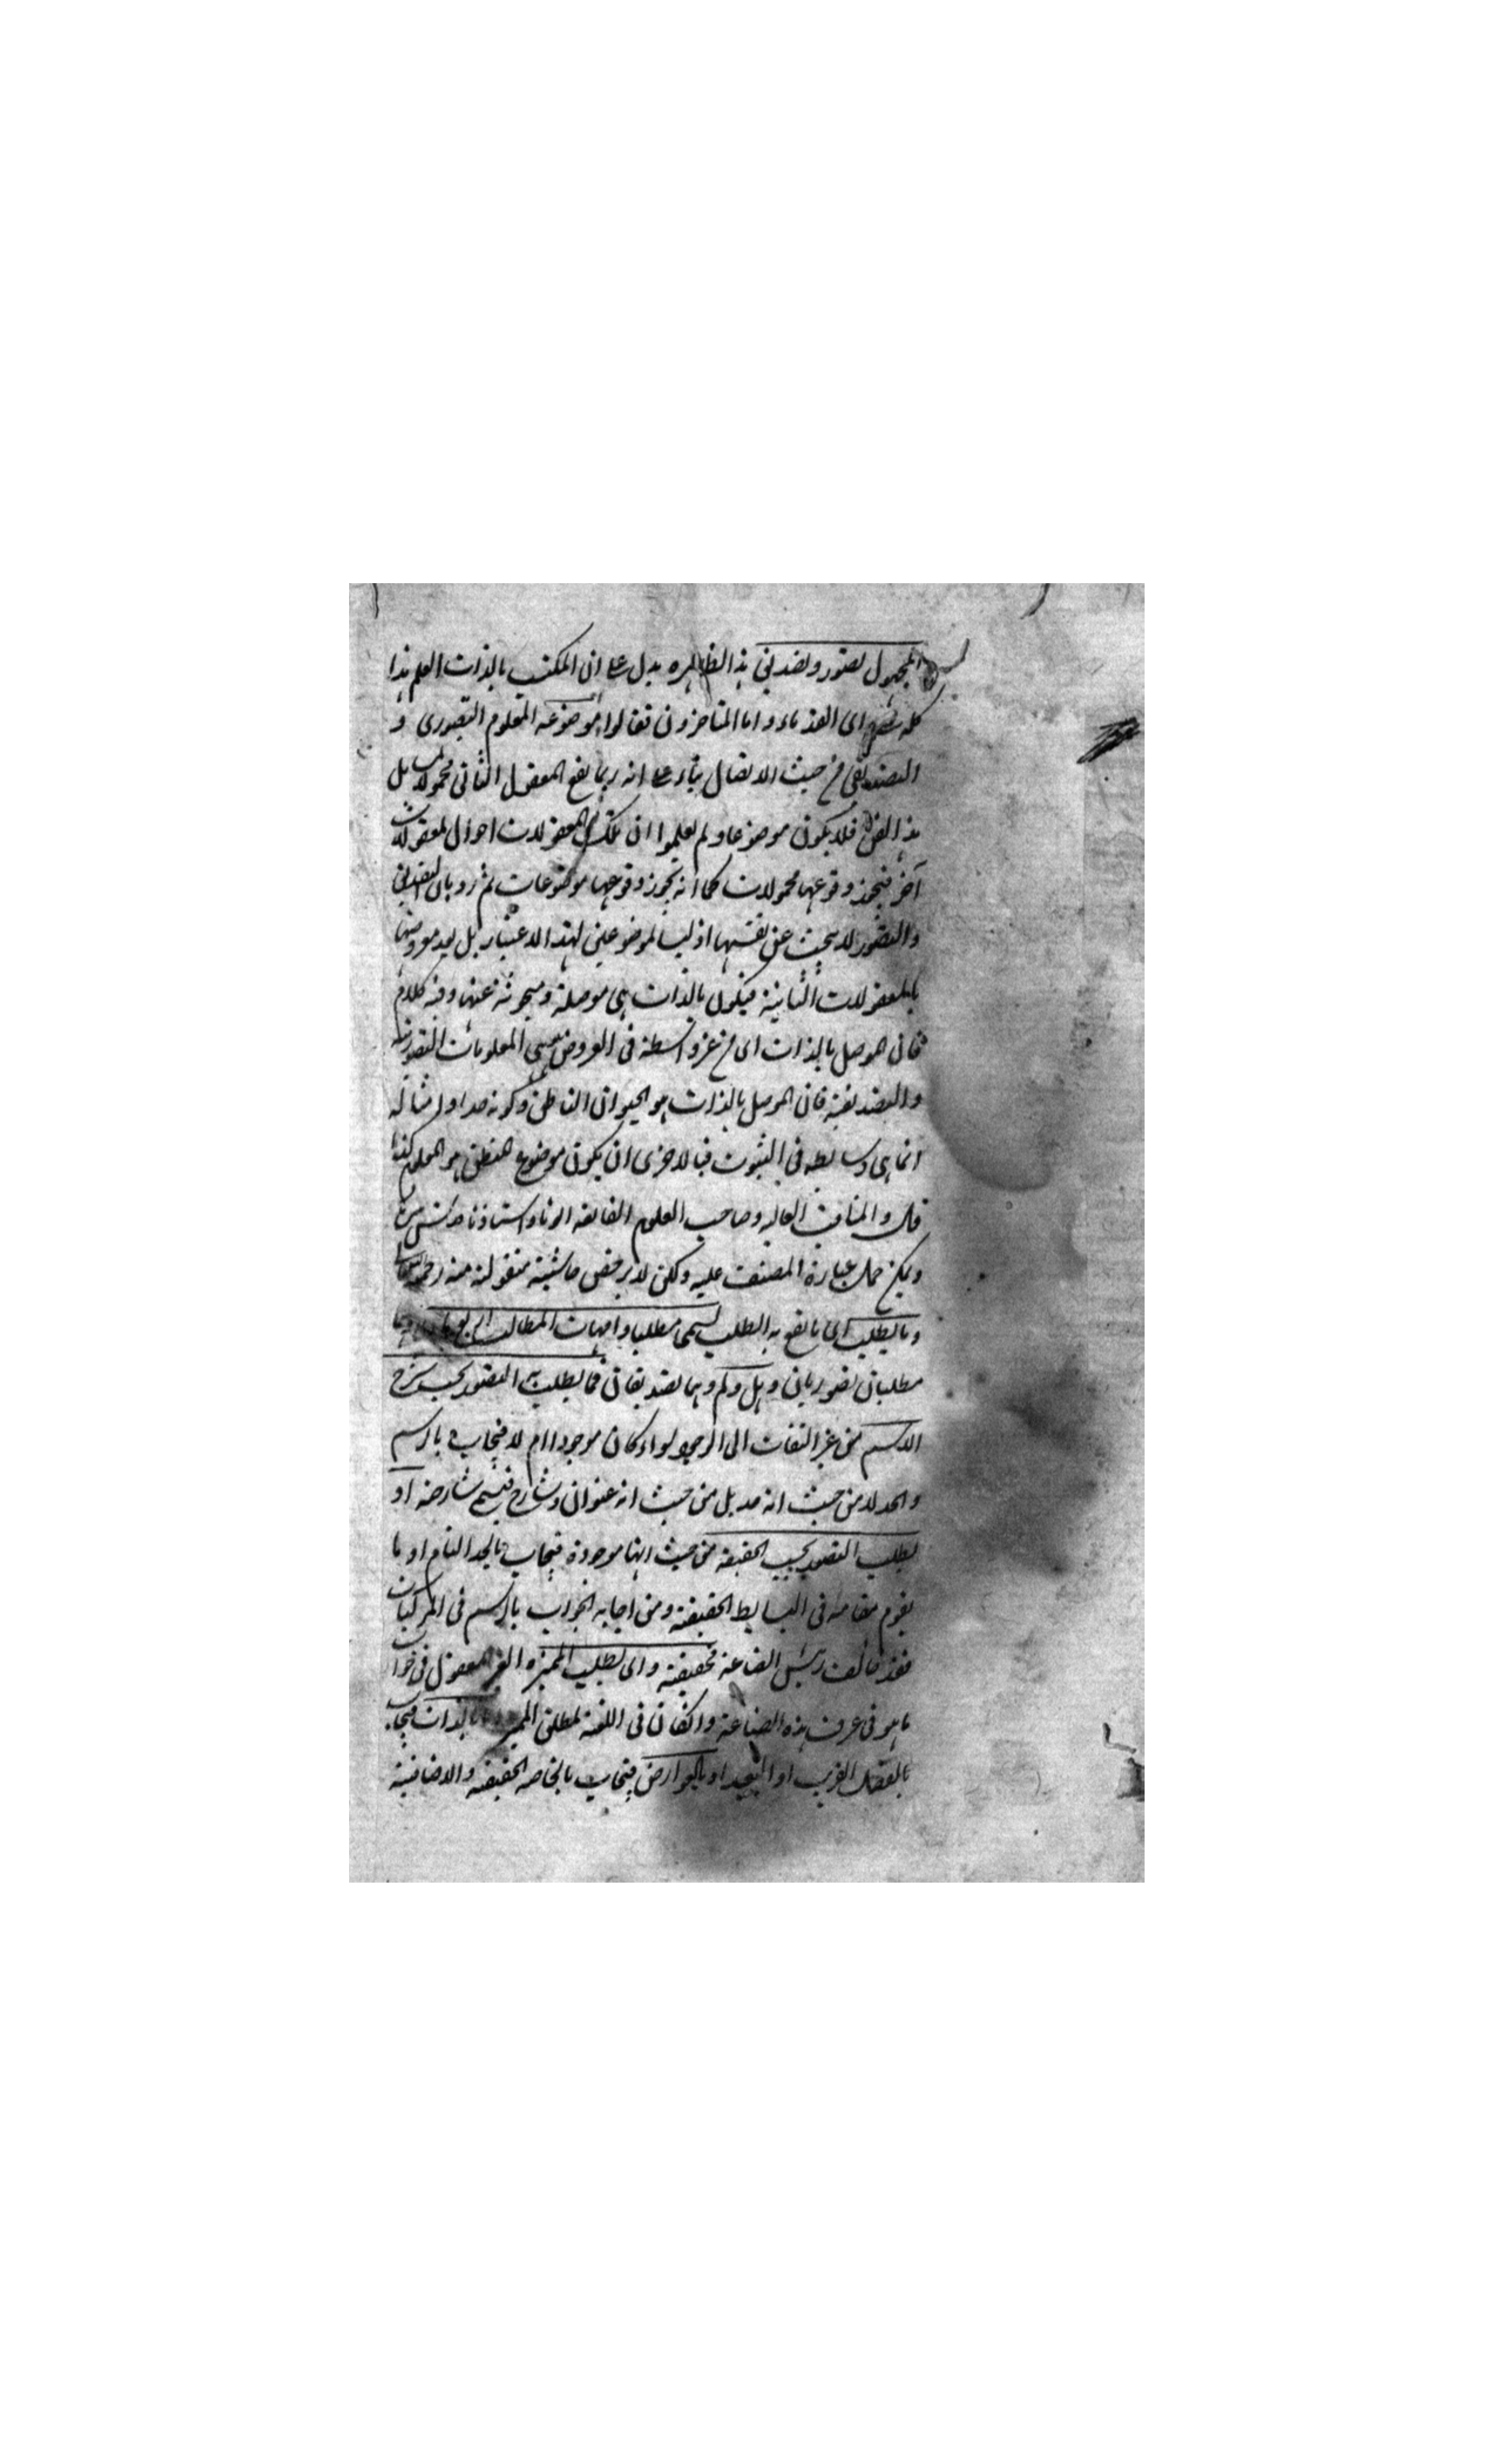 المجهول تصور وتصديق هذا الظاهره يدل على ان المكتسب بالذات العلم هذا
كله اى القدماء واما المتاخرون فقالوا موضوعه المعلوم التصورى و
التصديقى من حيث الايصال بناء على انه ربما يقع المعقول الثانى محمولا بل
هذا الفن فلا يكون موضوعا ولم يعلموا ان تلك المعقولات احوال لمعقولات
آخر فيجوز وقوعها محمولات كما انه يجوز وقوعها موضوعات ثم ان التصديق
والتصور لا يبحث عن نفسها اذ ليسا لموضوعين لهذا الاعتبار بل
بالمعقولات الثانية فيكون بالذات هى موصلة ومبحوثة عنها وفيه كلام
فان الموصل بالذات اى من غير واسطة فى العروض هى المعلومات التصورية
والتصديقية فان الموصل بالذات هو الحيوان الناطق وكونه حدا وامثاله
انما هى وسايط فى الثبوت فبالاحرى ان يكون موضوع المنطق هو المعلوم كذا
قال والمناقب العاليه وصاحب العلوم الفائقه استاذنا
ويمكن حمل عبارة المصنف عليه ولكن لا يرخص حاشية منقولة منه رحمه الله
وما يطلب اى ما يقع به الطلب يسمى مطلبا وامهات المطالب اربع
مطلبان تصوريان وهل ولم وهما تصديقان فما يطلب به التصور بحسب شرح
الاسم من غير التفات الى الوجود سواء كان موجودا ام لا فيجاب بالرسم
والحد لا من حيث انه حد بل من حيث انه عنوان وشارح فيسمى شارحة او
يطلب التصور بحسب الحقيقة من حيث انها موجودة فيجاب بالحد التام او ما
يقوم مقامه فى البسايط الحقيقية ومن اجابه الجواب بالرسم فى المركبات
فقد خالف رئيس الصناعة فحقيقية واى لطلب المميز الغير المعقول فى جواب
ما هو فى عرف هذه الصناعة وان كان فى اللغة لمطلق المميز بالذات فيجاب
بالفصل القريب او البعيد او بالعوارض فيجاب بالخاصه الحقيقية والاضافية